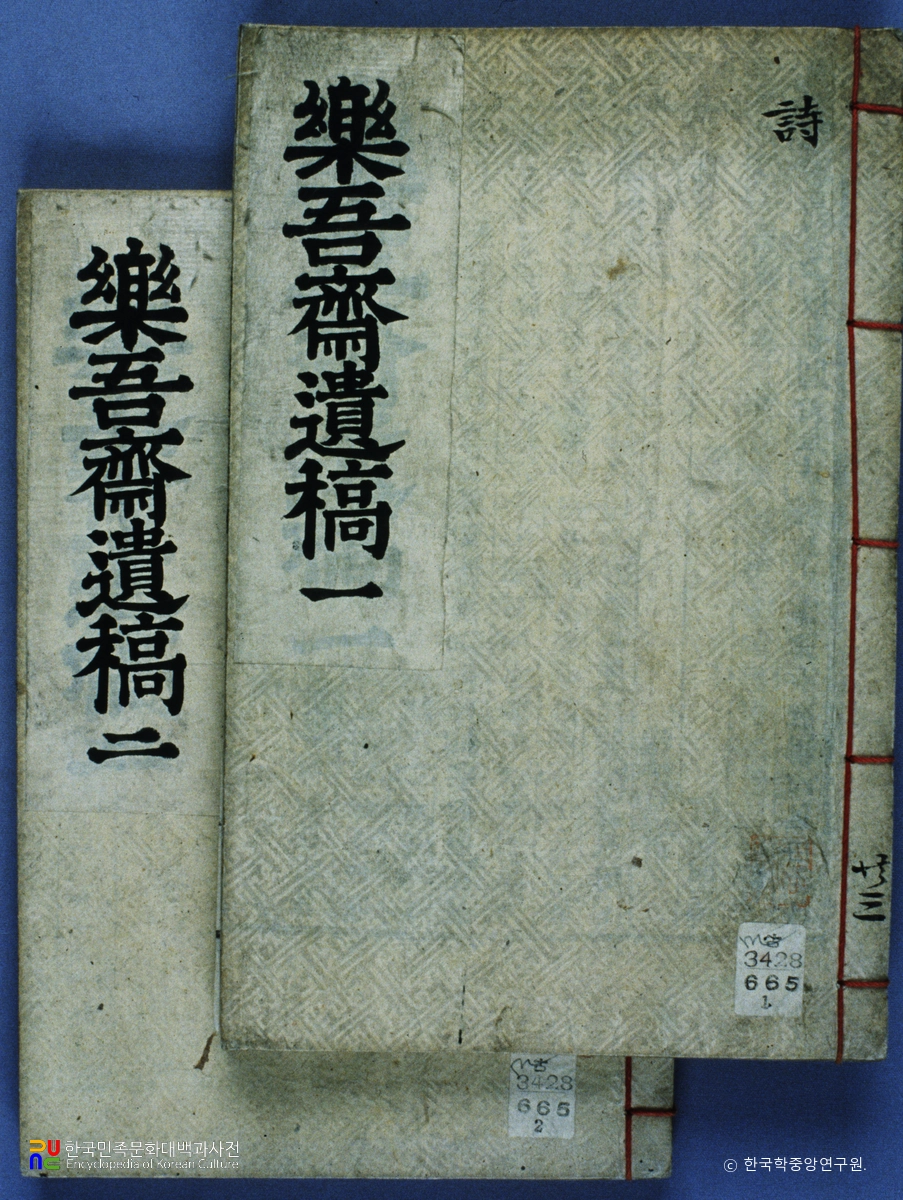 樂吾齋遺稿一
詩
樂吾齋遺稿二
三
3428
665
1
3428
665
2
한국민족문화대백과사전
Encyclopedia of Korean Culture
© 한국학중앙연구원.